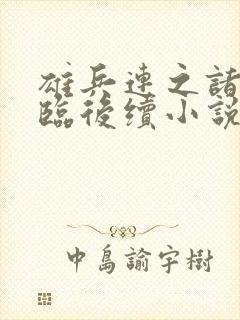 雄兵連之諸
臨後續小説
中島諭宇樹